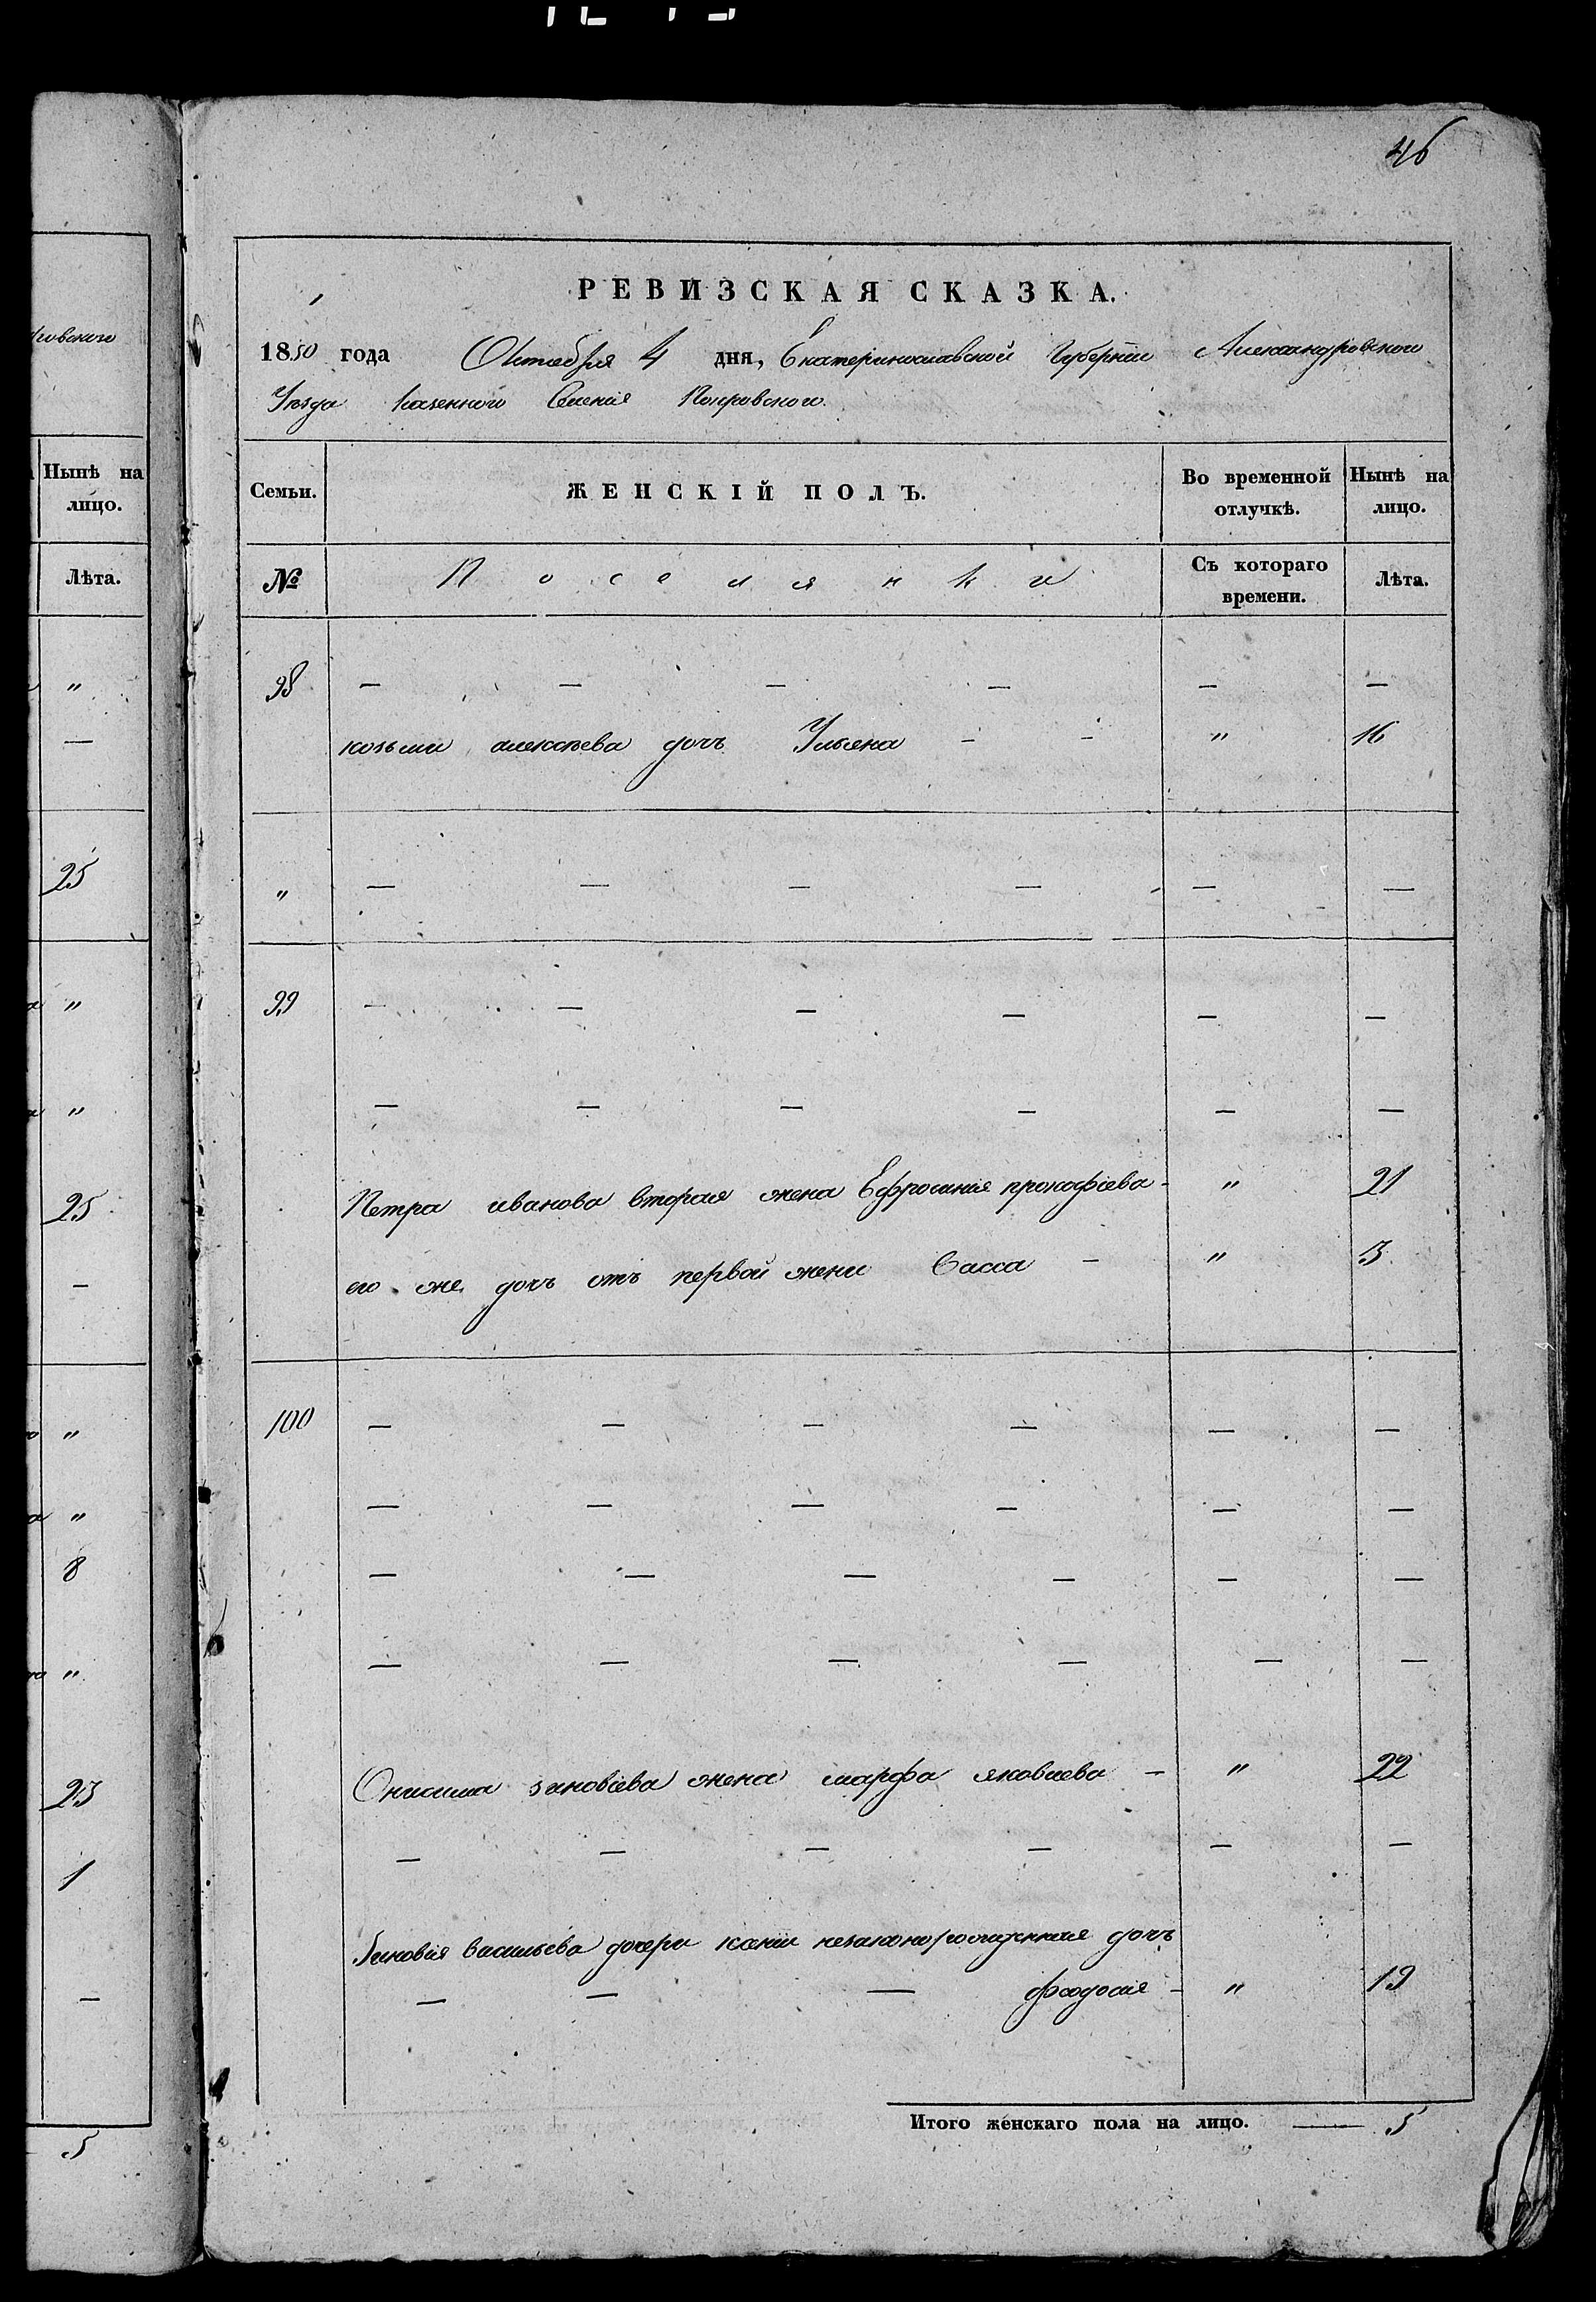 46
РЕВИЗСКАЯ СКАЗКА.
1850 года Октября 4 дня, Екатеринославской Губернии Александровского
Уезда Казенного Селенія Покровского.
Нынѣ на лицо.
Семьи.
ЖЕНСКІЙ ПОЛЪ.
Во временной отлучкѣ.
Нынѣ на лицо.
Лѣта.
№
Поселянки
Съ котораго времени.
Лѣта.
98 — — — — — —
козьми алексѣева дочь Ульяна - - " 16
" — — — — — —
99 — — — — — —
— — — — — —
Петра иванова вторая жена Ефросинія прокофіева - " 21
его же дочь отъ первой жени Васса - " 3
100 — — — — — —
— — — — — —
— — — — — —
— — — — — —
Онисима зиновіева жена марфа яковлева - " 22
— — — — — —
Зиновія васильева дочери ксении незаконорожденная дочь
— — — феодосія - " 19
Итого женскаго пола на лицо. — 5
"
—
25
"
"
25
—
"
"
8
"
23
1
—
5